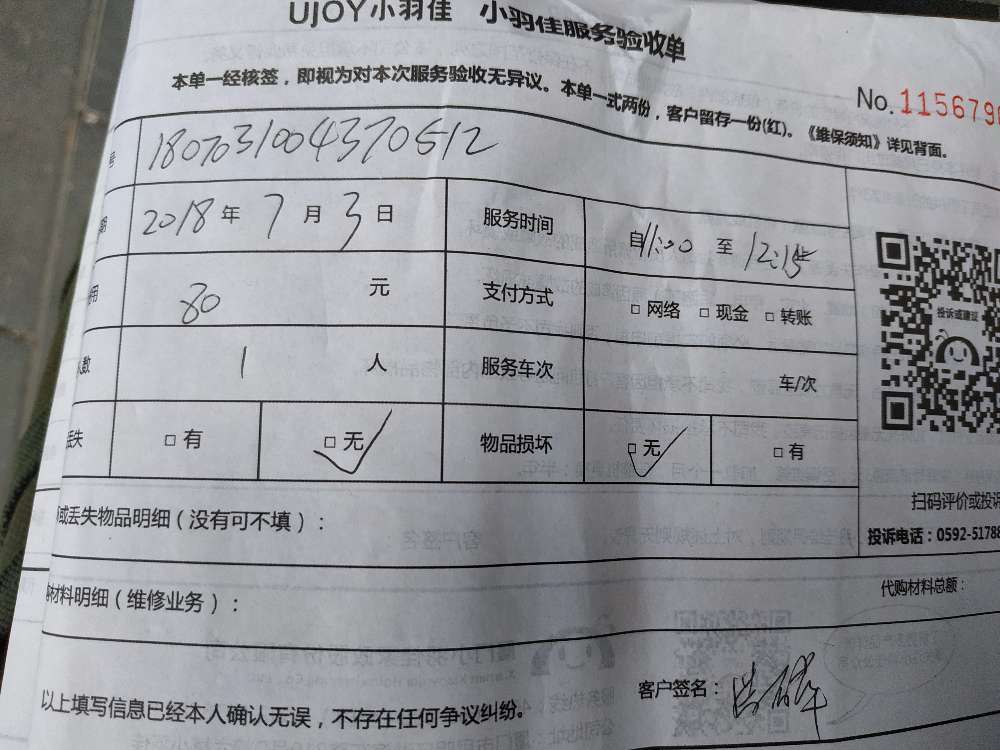 UJOY小羽佳 小羽佳服务验收单
本单一经核签，即视为对本次服务验收无异议。本单一式两份，客户留存一份(红)。《维保须知》详见背面。
No.1156790
号 1807031004370512
期 2018年7月3日 服务时间 自11:00 至 12:15
用 80 元 支付方式 □ 网络 □ 现金 □ 转账
人数 1 人 服务车次 车/次
丢失 □ 有 □ 无 物品损坏 □ 无 □ 有
投诉或建议
扫码评价或投诉
投诉电话：0592-51788
或丢失物品明细（没有可不填）：
材料明细（维修业务）： 代购材料总额：
以上填写信息已经本人确认无误，不存在任何争议纠纷。 客户签名：